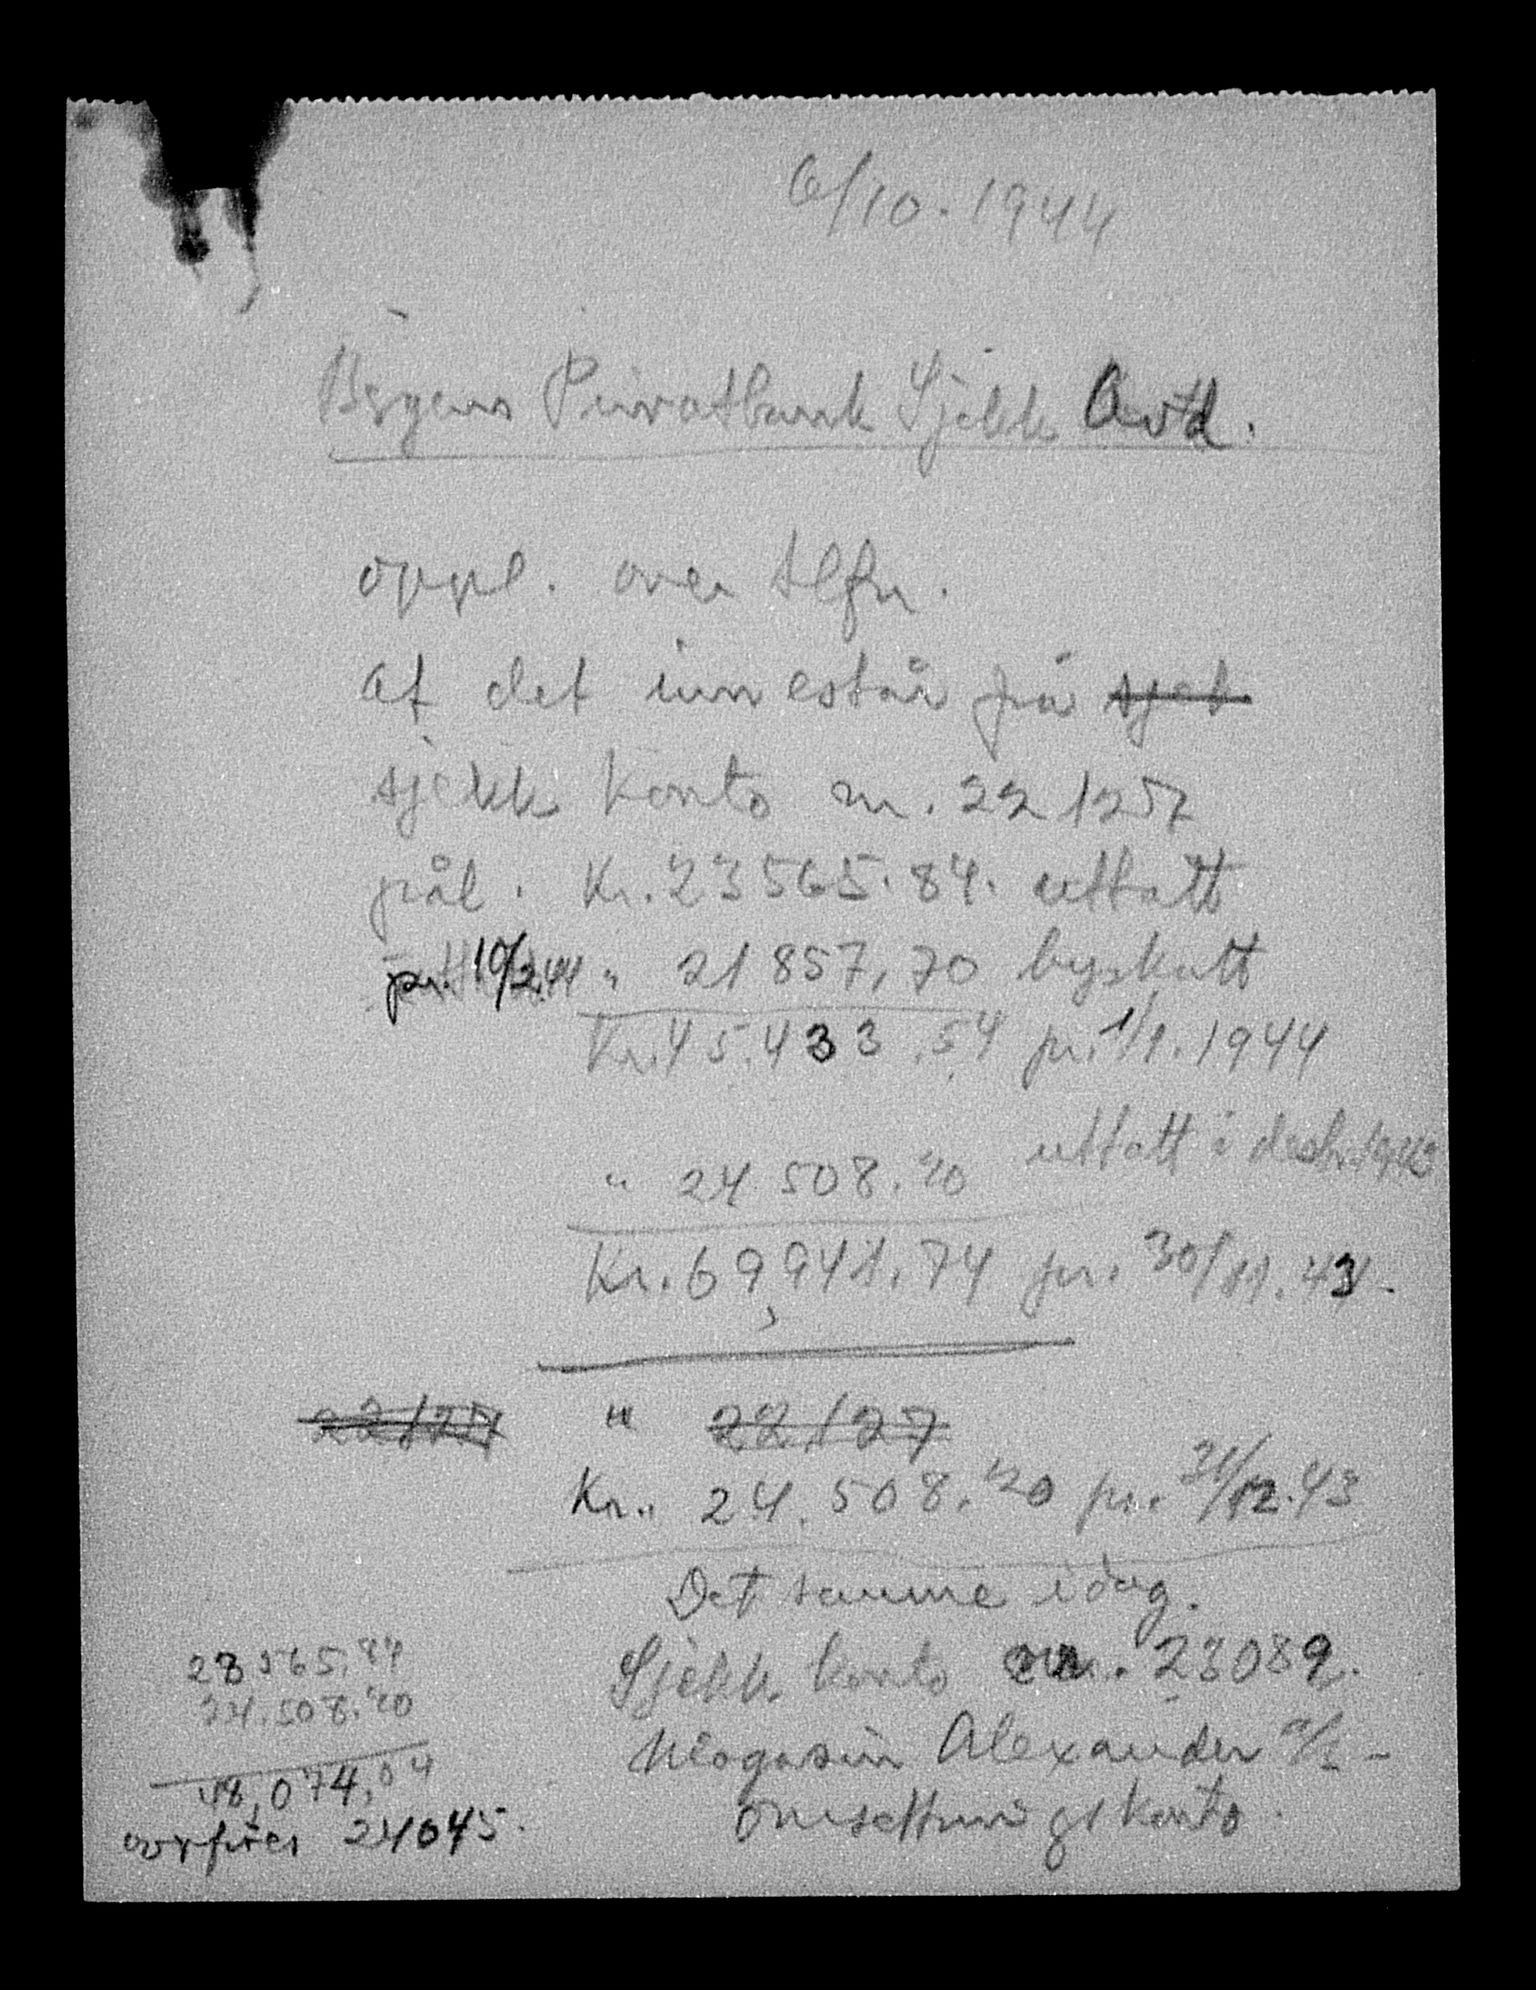 6/10. 1944
Bergens Privatbank Sjekk Avd.
oppl. over tlfn.
at det innestår på sjek
sjekk konto nr. 22127
pål. Kr. 23565.84. uttatt
pr. 10/2.44 " 21857,70 byskatt
Kr. 45.433.54 pr. 1/1. 1944
" 24 508.20 uttatt i desbr. 1943
Kr. 69,941.74 pr. 30/11. 43.
22127 " 22127
Kr. " 24.508.20 pr. 31/12.43
Det samme idag.
Sjekk. konto nr. 23089.
Magasin Alexander a/s -
omsetningskonto.
23565.84
24.508.20
48,074,04
overføres 24045.